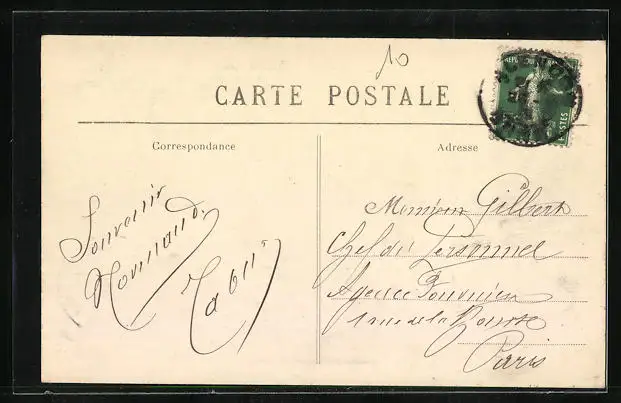 10
CARTE POSTALE
Correspondance
Adresse
Souvenir
Normand.
Monsieur Gilbert
Chef du Personnel
Agence Fournier
1 rue de la Bourse
Paris
POSTES